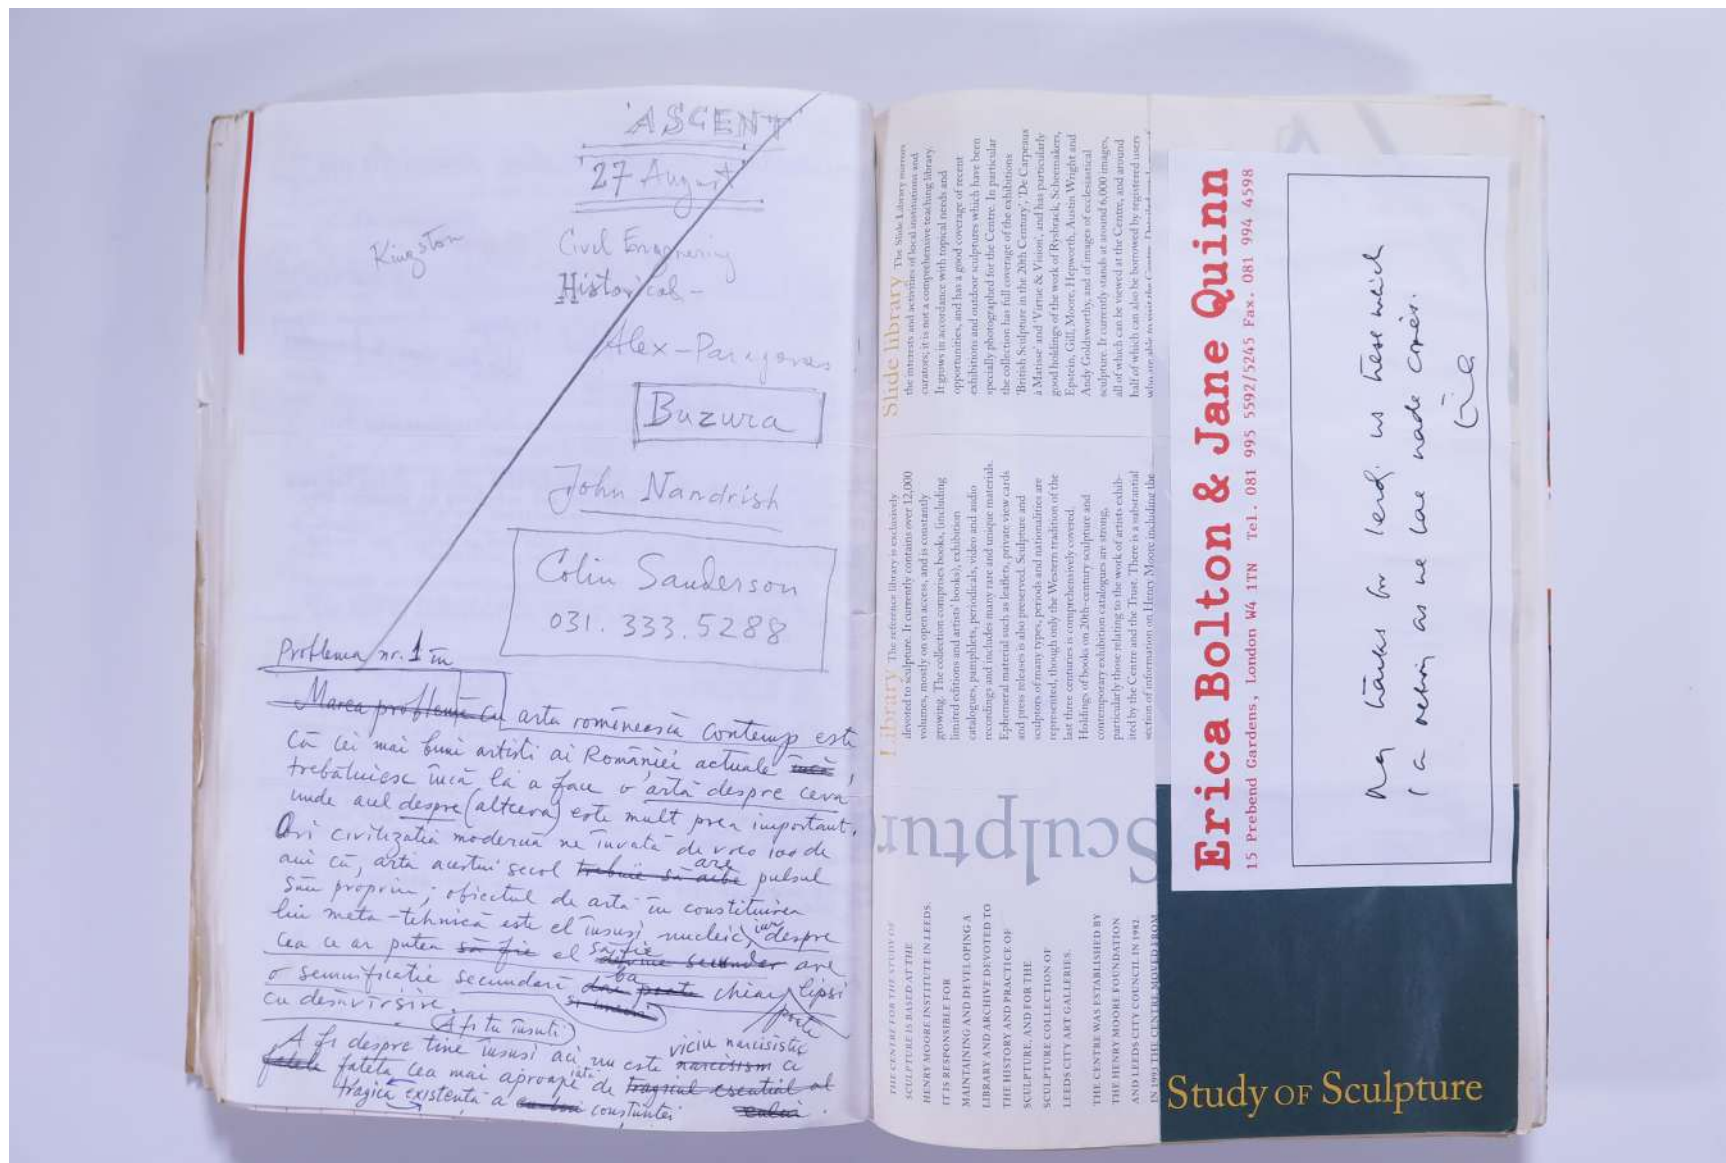 'ASCENT'
'27 August'
Kingston
Civil Engineering
Historical -
Alex - Paragonas
Buzura
John Nandrish
Colin Sanderson
031. 333. 5288
Problema nr. 1 în
Marea problemă cu arta românească contemp este
că cei mai buni artisti ai României actuale încă,
trebăluiesc încă la a face o artă despre ceva
unde acel despre (altceva) este mult prea important.
Ori civilizatia modernă ne învată de vreo 100 de
ani că, arta acestui secol trebuie să aibe are pulsul
său propriu; obiectul de artă în constituirea
lui meta-tehnică este el însusi nucleic, iar despre
cea ce ar putea să fie el să fie devine secundar are
o semnificatie secundară ba dar poate chiar lipsi
cu desăvîrsire. poate
A fi tu însuti
A fi despre tine însusi aci nu este viciu narcisistic narcisism ci
fateta cea mai apropiată de tragicul esential al
tragica existentă a constiintei
Slide library The Slide Library mirrors
the interests and activities of local institutions and
curators; it is not a comprehensive teaching library.
It grows in accordance with topical needs and
opportunities, and has a good coverage of recent
exhibitions and outdoor sculptures which have been
specially photographed for the Centre. In particular
the collection has full coverage of the exhibitions
'British Sculpture in the 20th Century', 'De Carpeaux
à Matisse' and 'Virtue & Vision', and has particularly
good holdings of the work of Rysbrack, Scheemakers,
Epstein, Gill, Moore, Hepworth, Austin Wright and
Andy Goldsworthy, and of images of ecclesiastical
sculpture. It currently stands at around 6,000 images,
all of which can be viewed at the Centre, and around
half of which can also be borrowed by registered users
who are able to visit the Centre.
Library The reference library is exclusively
devoted to sculpture. It currently contains over 12,000
volumes, mostly on open access, and is constantly
growing. The collection comprises books, (including
limited editions and artists' books), exhibition
catalogues, pamphlets, periodicals, video and audio
recordings and includes many rare and unique materials.
Ephemeral material such as leaflets, private view cards
and press releases is also preserved. Sculpture and
sculptors of many types, periods and nationalities are
represented, though only the Western tradition of the
last three centuries is comprehensively covered.
Holdings of books on 20th-century sculpture and
contemporary exhibition catalogues are strong,
particularly those relating to the work of artists exhib-
ited by the Centre and the Trust. There is a substantial
section of information on Henry Moore including the
Sculptur
THE CENTRE FOR THE STUDY OF
SCULPTURE IS BASED AT THE
HENRY MOORE INSTITUTE IN LEEDS.
IT IS RESPONSIBLE FOR
MAINTAINING AND DEVELOPING A
LIBRARY AND ARCHIVE DEVOTED TO
THE HISTORY AND PRACTICE OF
SCULPTURE, AND FOR THE
SCULPTURE COLLECTION OF
LEEDS CITY ART GALLERIES.
THE CENTRE WAS ESTABLISHED BY
THE HENRY MOORE FOUNDATION
AND LEEDS CITY COUNCIL IN 1982.
IN 1993 THE CENTRE MOVED FROM
Erica Bolton & Jane Quinn
15 Prebend Gardens, London W4 1TN Tel. 081 995 5592/5245 Fax. 081 994 4598
Many thanks for lending us these which
I am returning as we have made copies.
Study OF Sculpture